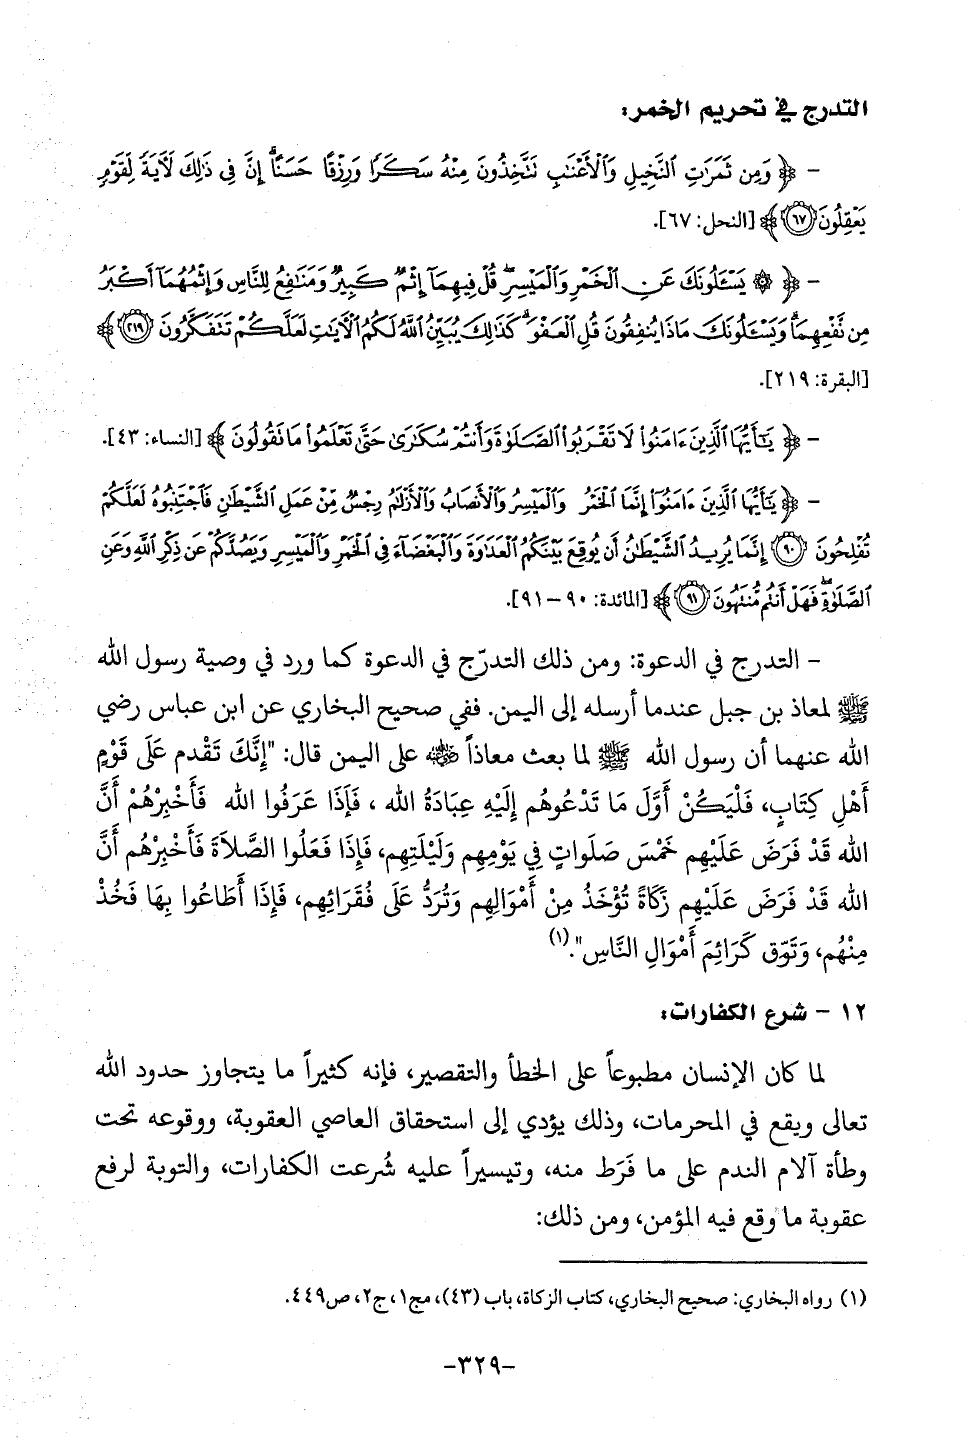 التدرج في تحريم الخمر:
- ﴿ وَمِن ثَمَرَٰتِ ٱلنَّخِيلِ وَٱلْأَعْنَٰبِ تَتَّخِذُونَ مِنْهُ سَكَرًا وَرِزْقًا حَسَنًا ۗ إِنَّ فِى ذَٰلِكَ لَءَايَةً لِّقَوْمٍ
يَعْقِلُونَ ﴿٦٧﴾ ﴾ [النحل: ٦٧].
- ﴿ ۞ يَسْـَٔلُونَكَ عَنِ ٱلْخَمْرِ وَٱلْمَيْسِرِ ۖ قُلْ فِيهِمَآ إِثْمٌ كَبِيرٌ وَمَنَٰفِعُ لِلنَّاسِ وَإِثْمُهُمَآ أَكْبَرُ
مِن نَّفْعِهِمَا ۗ وَيَسْـَٔلُونَكَ مَاذَا يُنفِقُونَ قُلِ ٱلْعَفْوَ ۗ كَذَٰلِكَ يُبَيِّنُ ٱللَّهُ لَكُمُ ٱلْءَايَٰتِ لَعَلَّكُمْ تَتَفَكَّرُونَ ﴿٢١٩﴾ ﴾
[البقرة: ٢١٩].
- ﴿ يَٰٓأَيُّهَا ٱلَّذِينَ ءَامَنُوا۟ لَا تَقْرَبُوا۟ ٱلصَّلَوٰةَ وَأَنتُمْ سُكَٰرَىٰ حَتَّىٰ تَعْلَمُوا۟ مَا تَقُولُونَ ﴾ [النساء: ٤٣].
- ﴿ يَٰٓأَيُّهَا ٱلَّذِينَ ءَامَنُوٓا۟ إِنَّمَا ٱلْخَمْرُ وَٱلْمَيْسِرُ وَٱلْأَنصَابُ وَٱلْأَزْلَٰمُ رِجْسٌ مِّنْ عَمَلِ ٱلشَّيْطَٰنِ فَٱجْتَنِبُوهُ لَعَلَّكُمْ
تُفْلِحُونَ ﴿٩٠﴾ إِنَّمَا يُرِيدُ ٱلشَّيْطَٰنُ أَن يُوقِعَ بَيْنَكُمُ ٱلْعَدَٰوَةَ وَٱلْبَغْضَآءَ فِى ٱلْخَمْرِ وَٱلْمَيْسِرِ وَيَصُدَّكُمْ عَن ذِكْرِ ٱللَّهِ وَعَنِ
ٱلصَّلَوٰةِ ۖ فَهَلْ أَنتُم مُّنتَهُونَ ﴿٩١﴾ ﴾ [المائدة: ٩٠ – ٩١].
- التدرج في الدعوة: ومن ذلك التدرّج في الدعوة كما ورد في وصية رسول الله
ﷺ لمعاذ بن جبل عندما أرسله إلى اليمن. ففي صحيح البخاري عن ابن عباس رضي
الله عنهما أن رسول الله ﷺ لما بعث معاذاً رضي الله عنه على اليمن قال: "إِنَّكَ تَقْدم عَلَى قَوْمٍ
أَهْلِ كِتَابٍ، فَلْيَكُنْ أَوَّلَ مَا تَدْعُوهُم إِلَيْهِ عِبَادَةُ الله ، فَإِذَا عَرَفُوا الله فَأَخْبِرْهُمْ أَنَّ
الله قَدْ فَرَضَ عَلَيْهِم خَمْسَ صَلَواتٍ فِي يَوْمِهِم وَلَيْلَتِهِم، فَإِذَا فَعَلُوا الصَّلاَةَ فَأَخْبِرْهُم أَنَّ
الله قَدْ فَرَضَ عَلَيْهِم زَكَاةً تُؤْخَذُ مِنْ أَمْوَالِهِم وَتُرَدُّ عَلَى فُقَرَائِهِم، فَإِذَا أَطَاعُوا بِهَا فَخُذْ
مِنْهُم، وَتَوَّق كَرَائِمَ أَمْوَالِ النَّاسِ".(١)
١٢ - شرع الكفارات:
لما كان الإنسان مطبوعاً على الخطأ والتقصير، فإنه كثيراً ما يتجاوز حدود الله
تعالى ويقع في المحرمات، وذلك يؤدي إلى استحقاق العاصي العقوبة، ووقوعه تحت
وطأة آلام الندم على ما فَرَط منه، وتيسيراً عليه شُرعت الكفارات، والتوبة لرفع
عقوبة ما وقع فيه المؤمن، ومن ذلك:
(١) رواه البخاري: صحيح البخاري، كتاب الزكاة، باب (٤٣)، مج١، ج٢، ص٤٤٩.
-٣٢٩-